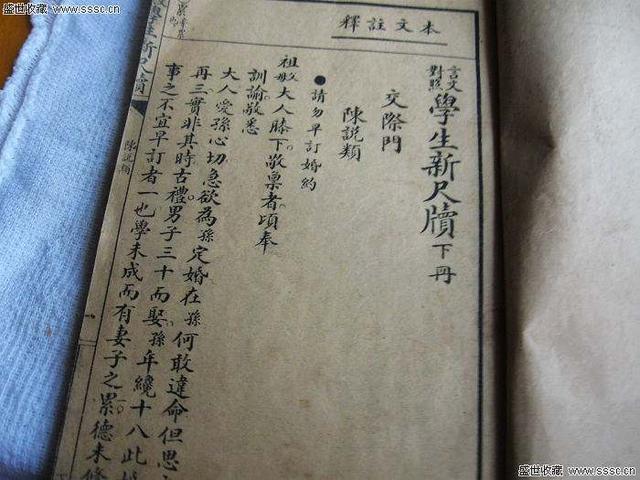 盛世收藏 www.sssc.cn
盛世收藏 www.sssc.cn
本文註釋
言文對照學生新尺牘下冊
交際門
陳説類
●請勿早訂婚約
祖母大人膝下敬禀者頃奉
訓諭敬悉
大人愛孫心切急欲為孫定婚在孫何敢違命但思
再三實非其時古禮男子三十而娶孫年纔十八此
事之不宜早訂者一也學未成而有妻子之累德未修
學生新尺牘
陳説類
盛世收藏 www.sssc.cn
盛世收藏 www.sssc.cn